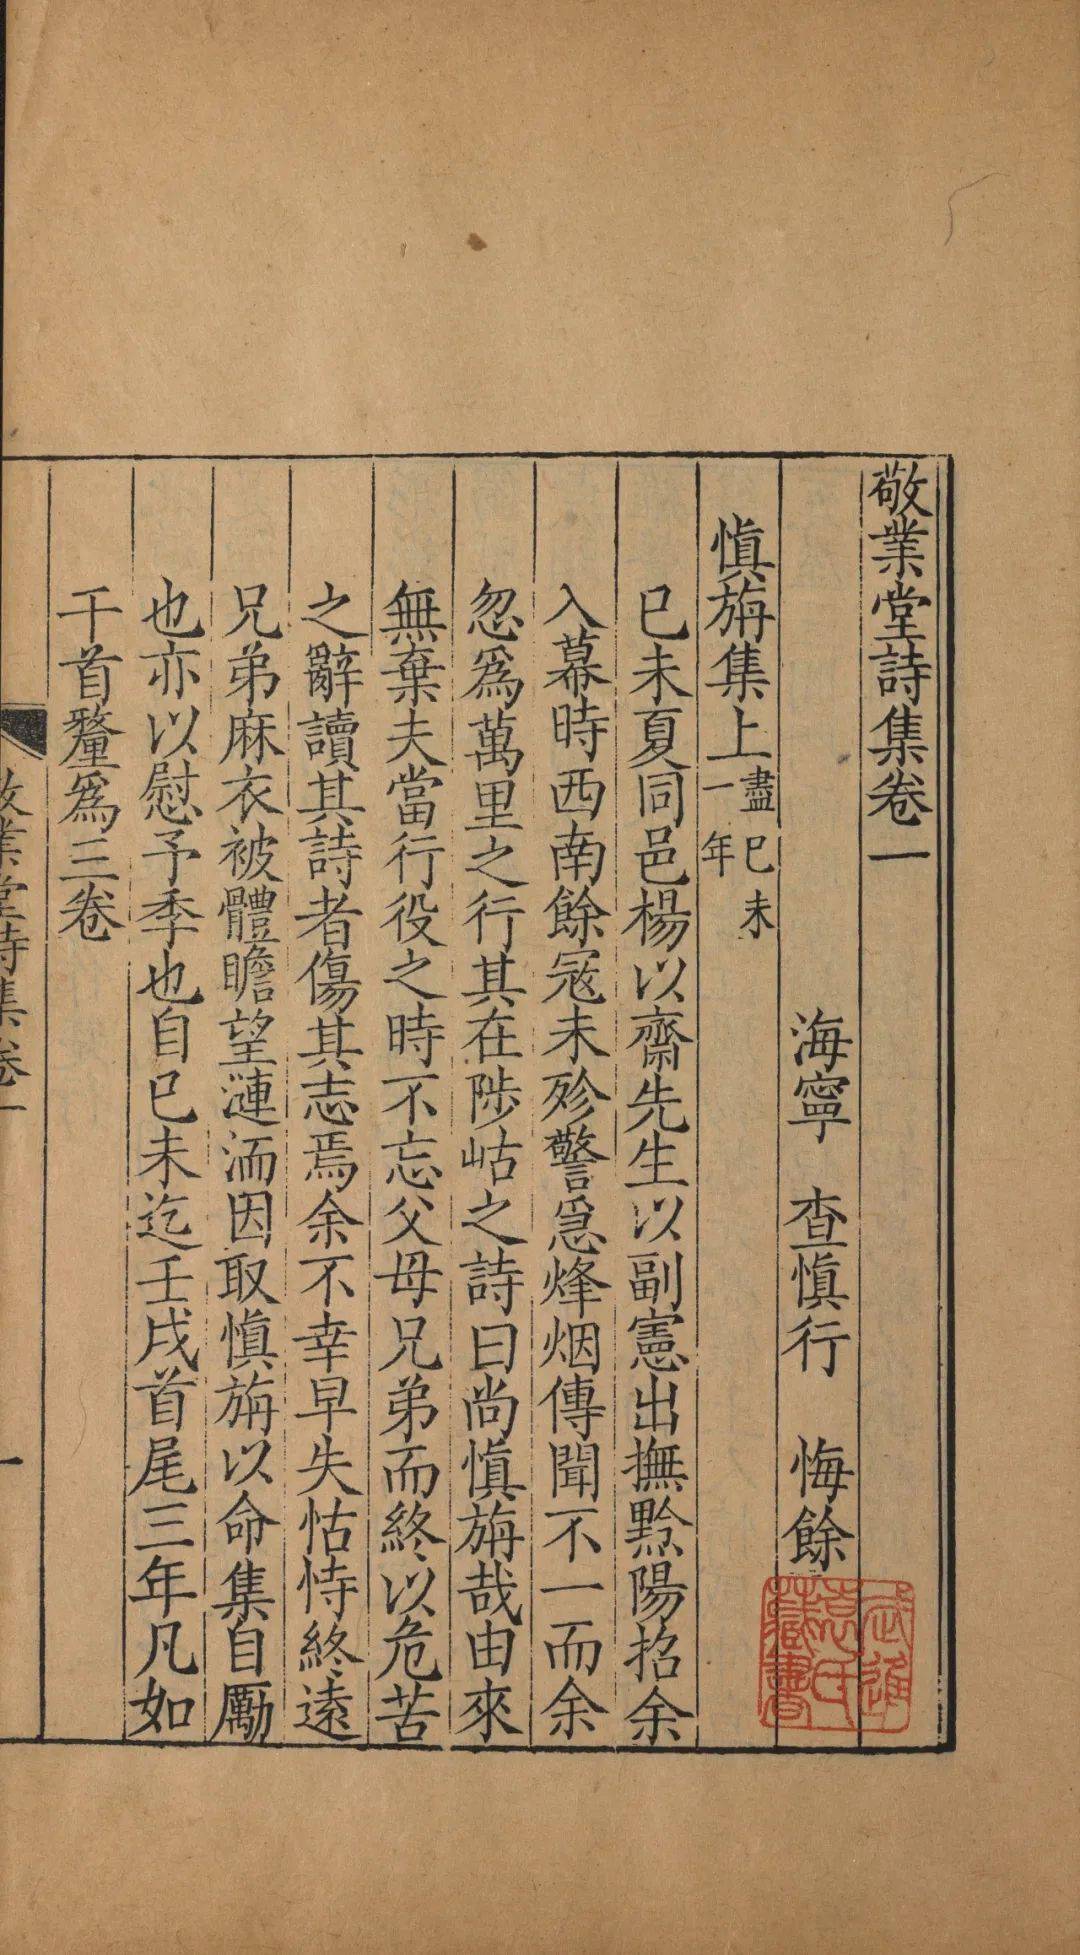 敬業堂詩集卷一
海寧　查愼行　悔餘
愼旃集上
盡己未
一年
己未夏同邑楊以齋先生以副憲出撫黔陽招余
入幕時西南餘寇未殄警急烽烟傳聞不一而余
忽爲萬里之行其在陟岵之詩曰尚愼旃哉由來
無棄夫當行役之時不忘父母兄弟而終以危苦
之辭讀其詩者傷其志焉余不幸早失怙恃終遠
兄弟麻衣被體瞻望漣洏因取愼旃以命集自勵
也亦以慰予季也自己未迄壬戌首尾三年凡如
干首釐爲三卷
敬業堂詩集卷一
一
武進
袁氏
藏書